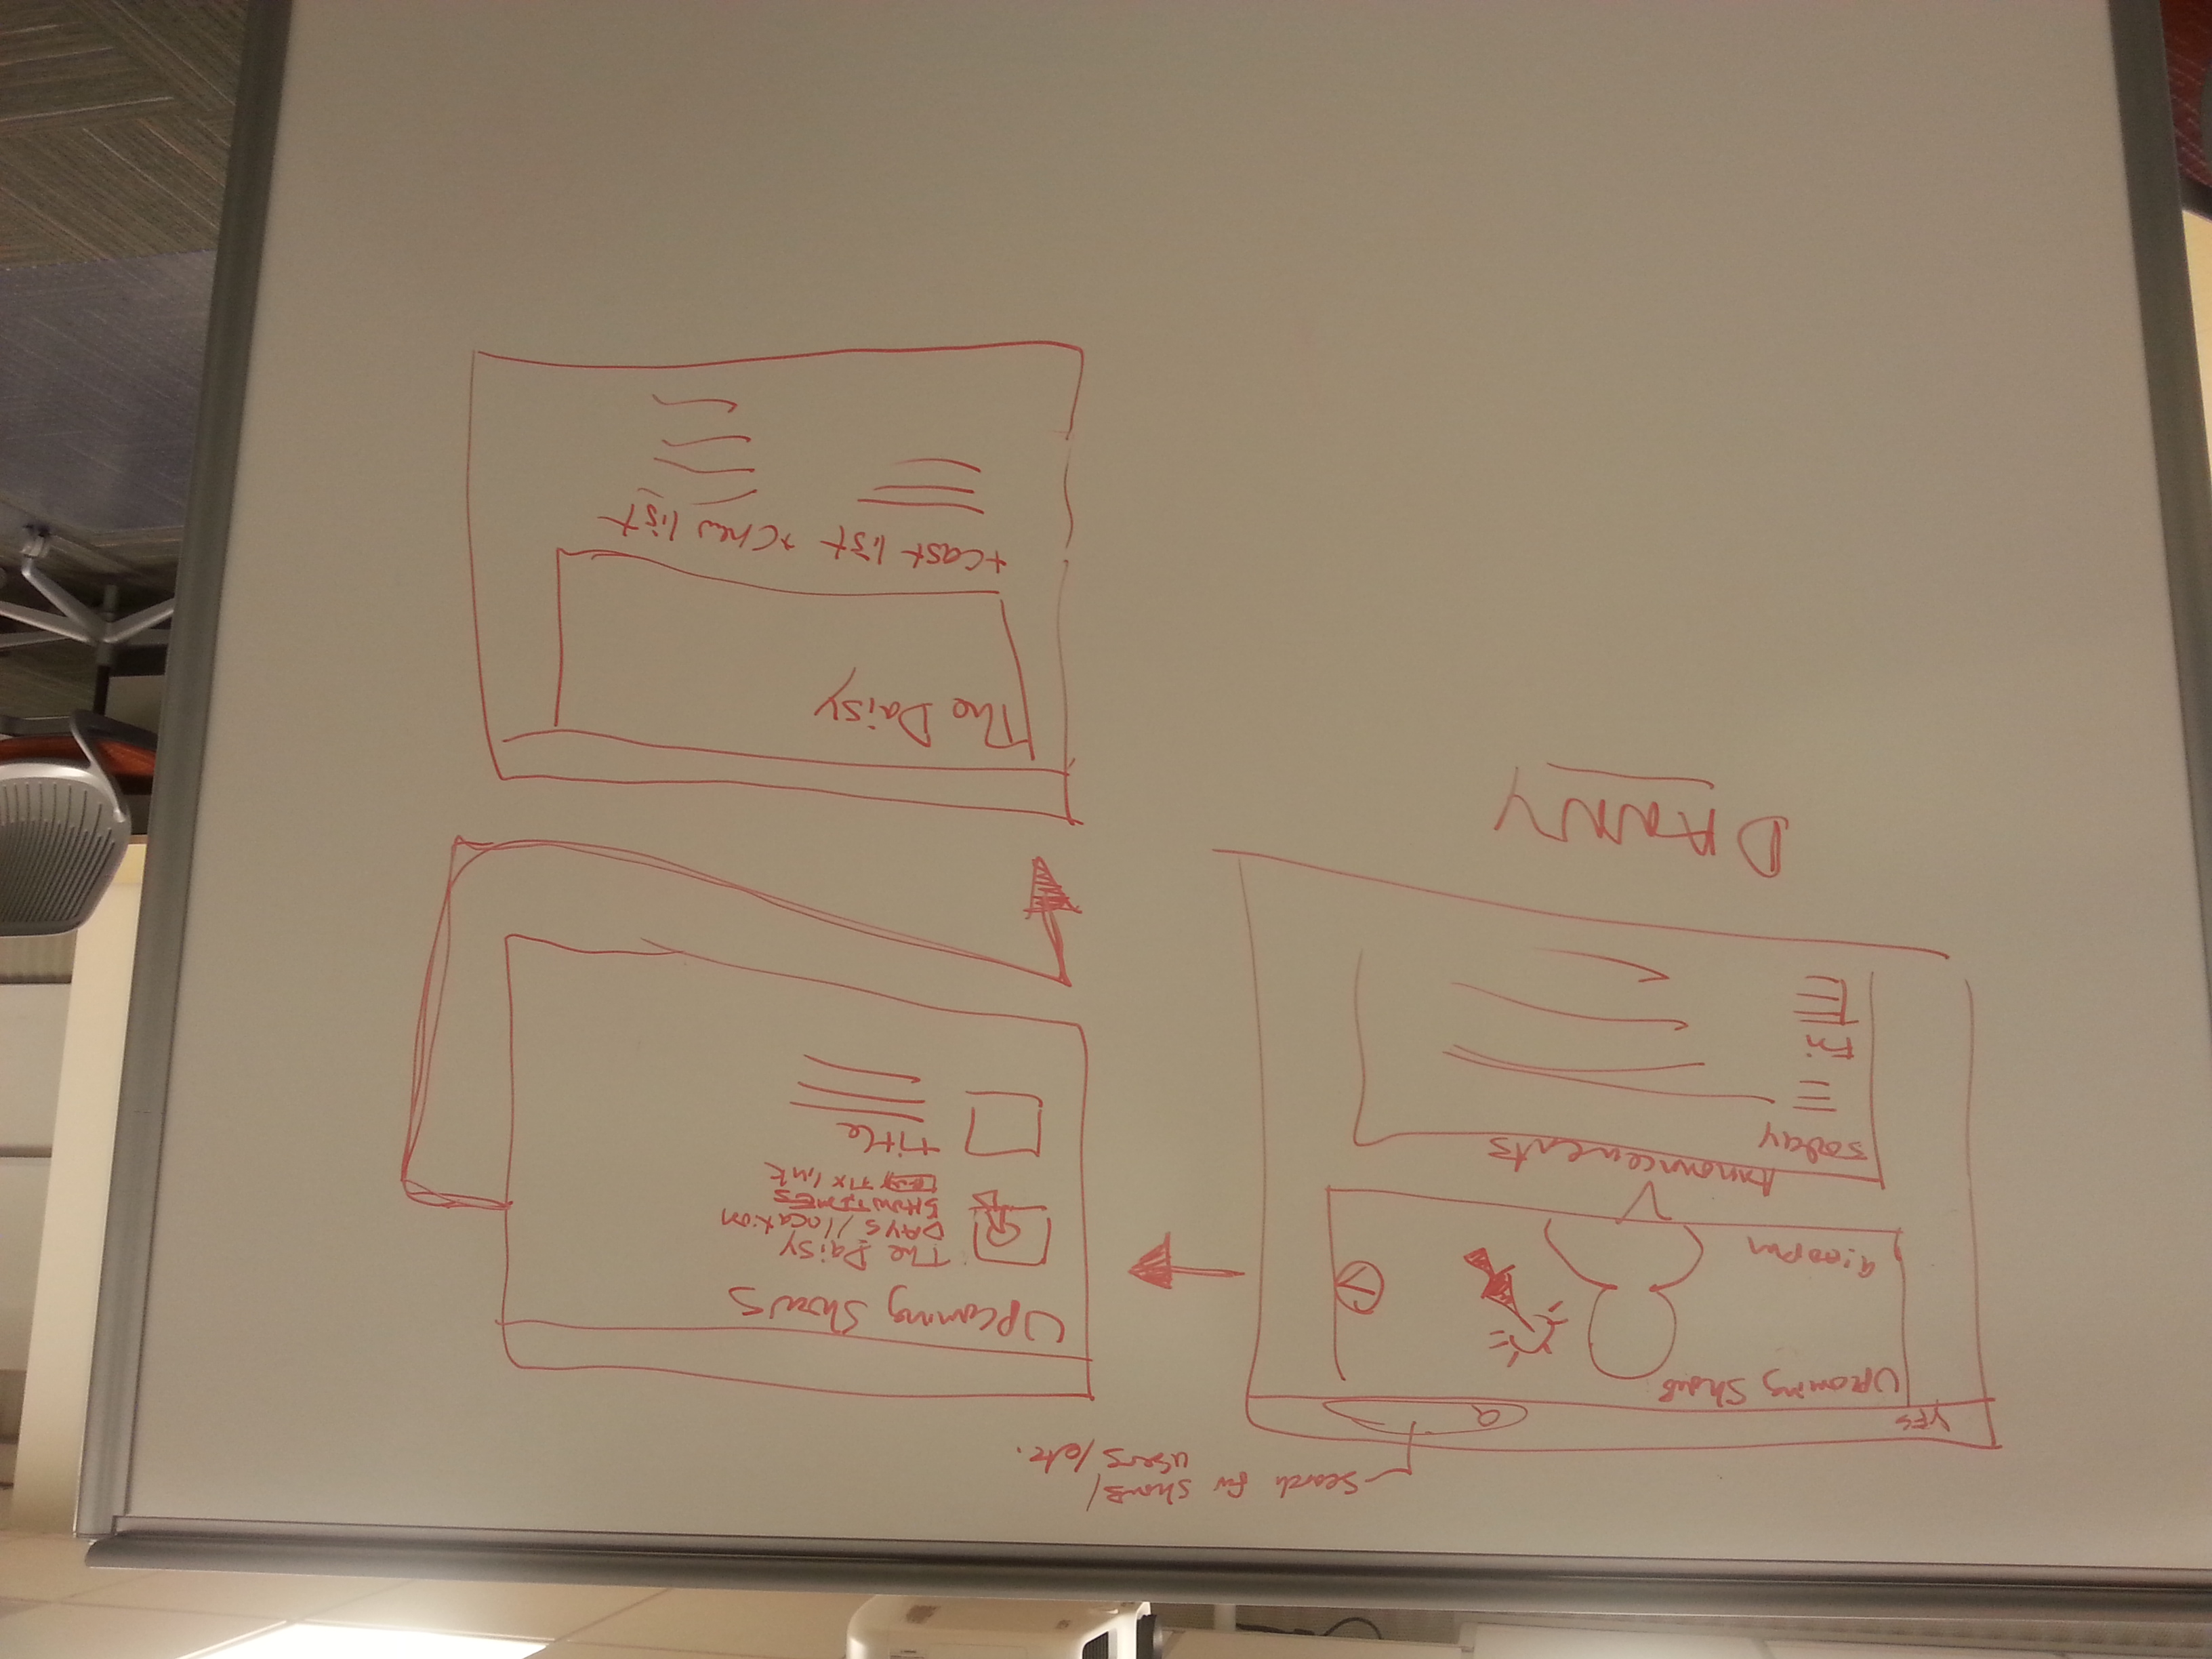 Search for shows/
users/etc.
YFS
Upcoming Shows
9:00pm
Announcements
Today
Fri
DANNY
Upcoming Shows
The Daisy
DAYS/location
SHOWTIMES
TIX link
title
The Daisy
+cast list +Crew list